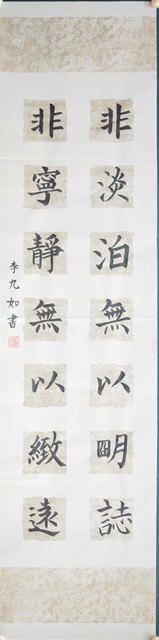 非淡泊無以明誌
非寧靜無以緻遠
李九如書